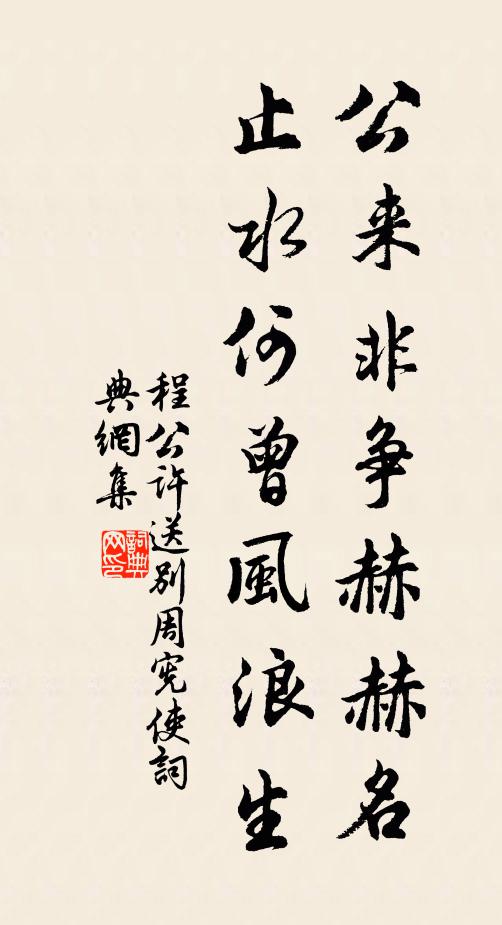 公来非争赫赫名
止水何曾風浪生
程公許送別周宪使詞
典網集
詞典
网印